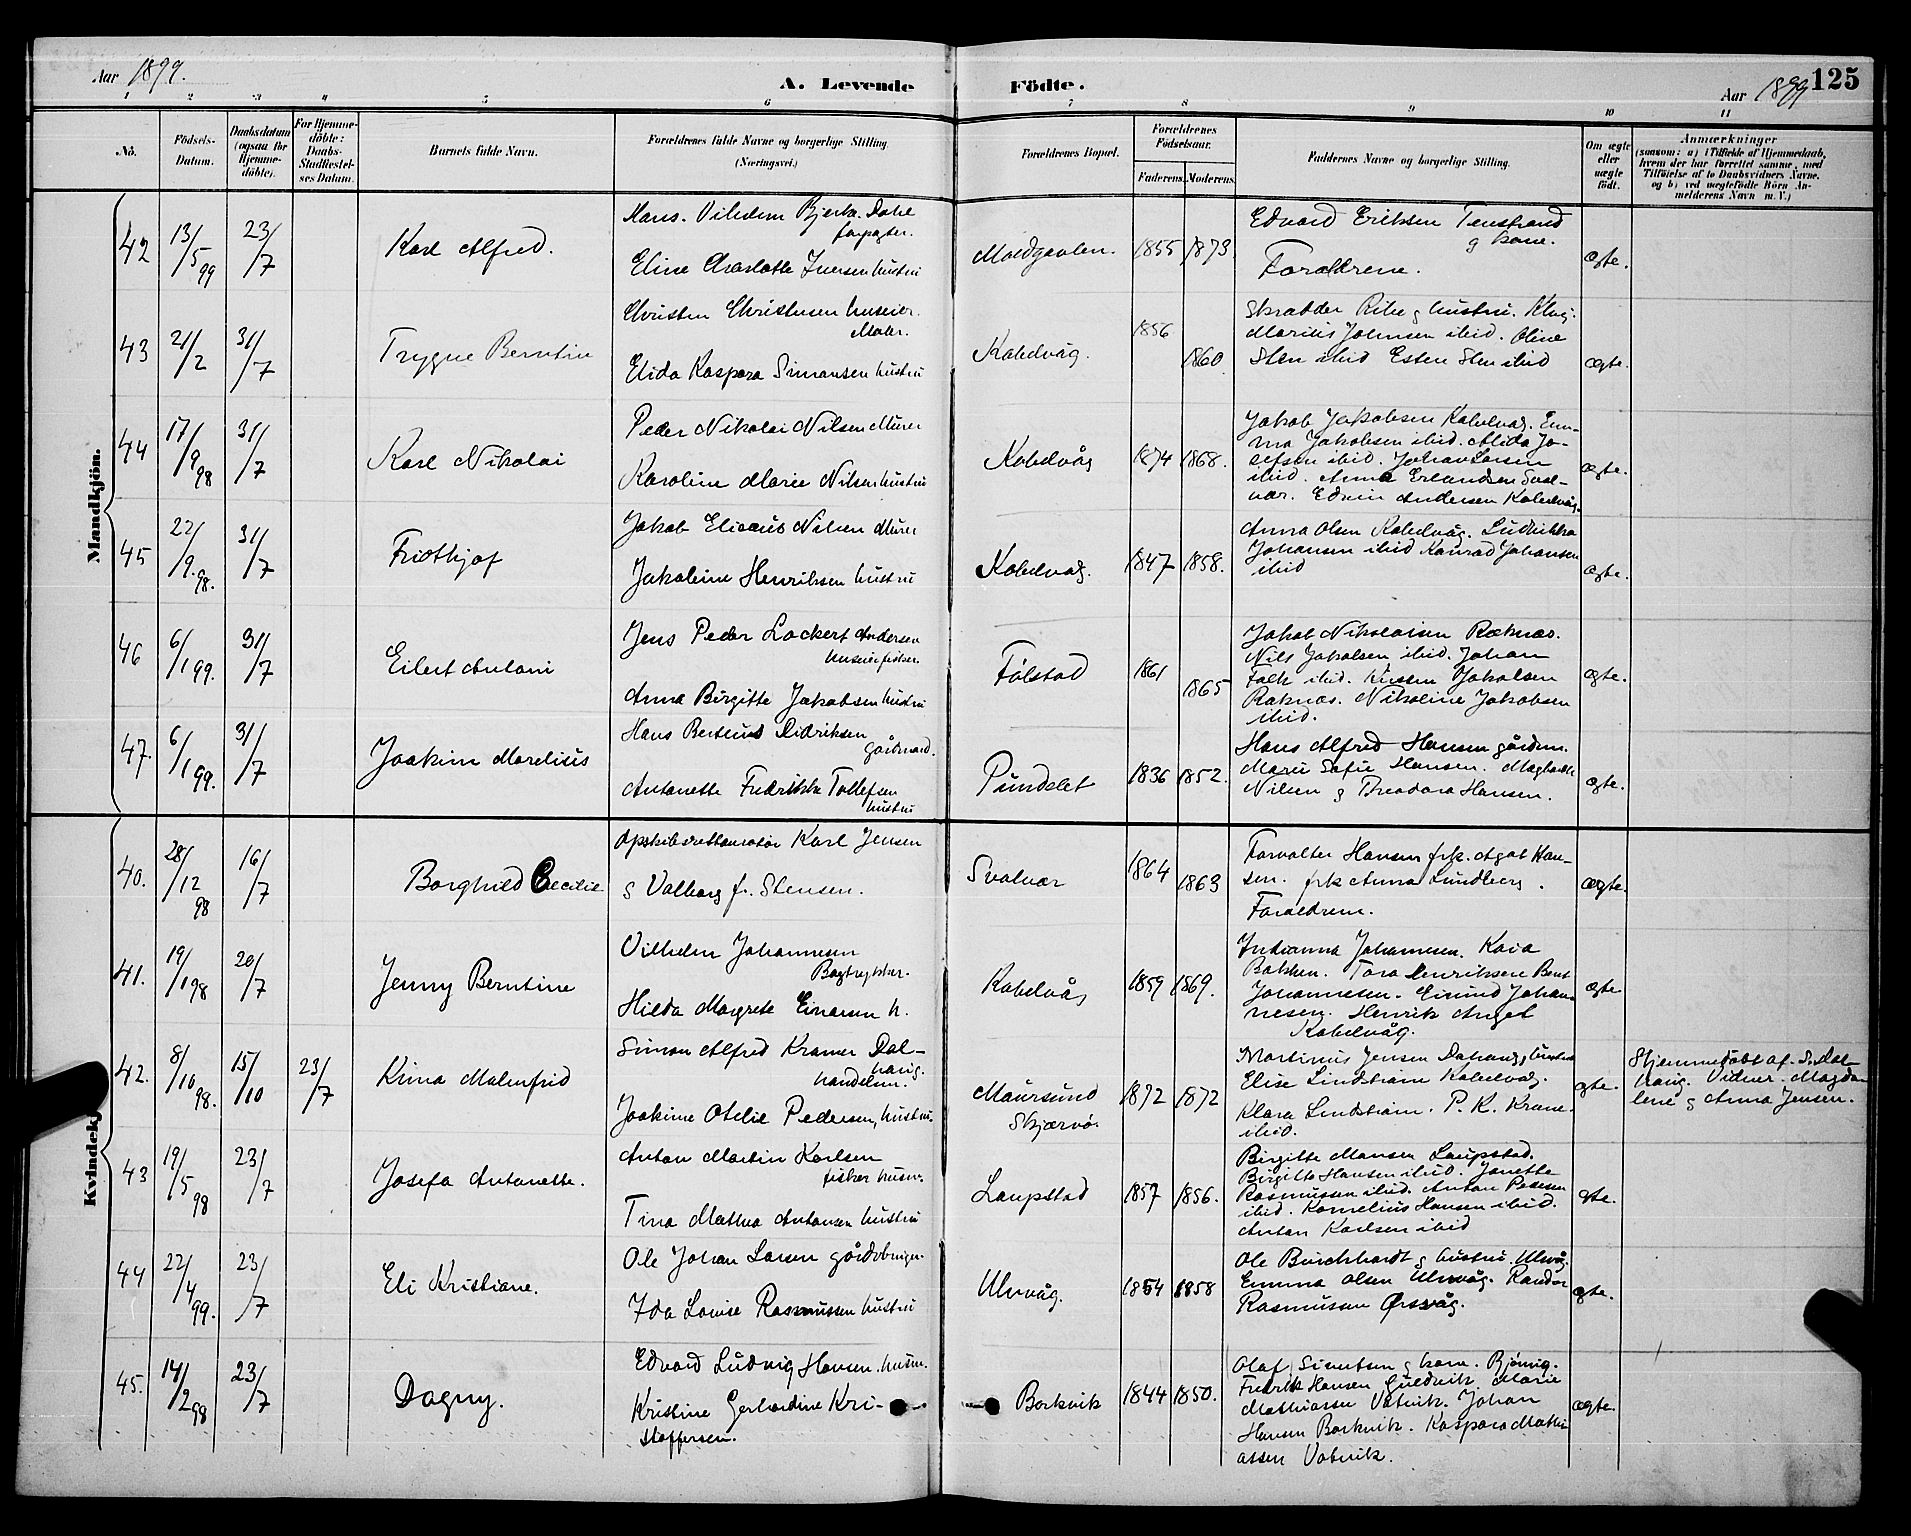 Aar 1899.
A. Levende
Födte.
Aar 1899
125
1 2 3 4 5 6 7 8 9 10 11
No.
Födsels-
Datum.
Daabsdatum
(ogsaa for
Hjemme-
döbte).
For Hjemme-
döbte:
Daabs-
Stadfæstel-
ses Datum.
Barnets fulde Navn.
Forældrenes fulde Navne og borgerlige Stilling
(Næringsvei.)
Forældrenes Bopæl.
Forældrenes
Födselsaar.
Faderens. Moderens.
Faddernes Navne og borgerlige Stilling.
Om ægte
eller
uægte
født.
Anmærkninger
(saasom: a) i Tilfælde af Hjemmedaab,
hvem der har forrettet samme, med
Tilföielse af to Daabsvidners Navne.
og b) ved uægtefödte Börn An-
melderens Navn m. V.)
Mandkjön.
42 13/5 99 23/7 Karl Alfred.
Hans. Vilhelm Bjerk. Dahl
forpagter.
Eline Charlotte Iversen hustru
Moldgavlen. 1855 1873.
Edvard Eriksen Tenstrand
g kone.
Forældrene.
ægte.
43 21/2 31/7 Trygve Berntin
Christen Christensen huseier.
Maler.
Elida Kaspara Simonsen hustru
Kabelvåg. 1856 1860.
Skrædder Ribe g hustru. Kbvg.
Marius Johnsen ibid. Oline
Sten ibid Esten Sten ibid
ægte.
44 17/9 98 31/7 Karl Nikolai
Peder Nikolai Nilsen Murer
Karoline Marie Nilsen hustru
Kabelvåg 1874 1868.
Jakob Jakobsen Kabelvåg. Em-
ma Jakobsen ibid. Alida Jo-
sefsen ibid. Johan Larsen
ibid. Anna Erlandsen Svol-
vær. Edvin Andersen Kabelvåg.
ægte.
45 22/9. 98. 31/7 Fridthjof
Jakob Elisæus Nilsen Murer
Jakobine Henriksen hustru
Kabelvåg. 1847 1858.
Anna Olsen Kabelvåg. Ludvikka
Johansen ibid Konrad Johansen
ibid
ægte.
46 6/1 99. 31/7 Eilert Antoni
Jens Peder Lockert Andersen
huseier fisker.
Anna Birgitte Jakobsen hustru
Fölstad 1861 1865
Jakob Nikolaisen Raknæs.
Nils Jakobsen ibid. Johan
Falk ibid. Jakobsen
Raknæs. Nikoline Jakobsen
ibid.
ægte.
47. 6/1 99. 31/7 Joakim Marelius
Hans Berteus Didriksen
gårdmand.
Antonette Fredrikke Tollefsen
hustru
Pundslet 1836 1852.
Hans Alfred Hansen gårdm.
Marie Sofie Hansen.
Nilsen g Theodora Hansen.
ægte.
Kvindekj
40. 28/12 98 16/7 Borghild Cecilie
Karl Jensen
g Valborg f. Stensen.
Svolvær 1864 1863
Forvalter Hansen frk. Agot Han-
sen. frk Anna Lundberg.
Forældrene.
ægte.
41. 19/1 98 20/7 Jenny Berntine
Vilhelm Johannesen
Bogtrykker.
Hilda Margrete Einarsen h.
Kabelvåg 1859 1869.
Indianna Johannesen. Kaia
Bakken. Tora Henriksen Bent
Johannesen. Eivind Johan-
nesen. Henrik Angel
Kabelvåg.
ægte
42. 8/10 98. 15/10 23/7 Kima Malmfrid
Simon Alfred Kramer Dal-
haug.
handelsm.
Joakime Otelie Pedersen, hustru.
Maursund
Skjærvö. 1872 1872
Martinus Jensen Dahaug g hustru
Elise Lindström Kabelvåg.
Klara Lindström. P. K. Krane.
ibid.
ægte.
Hjemmedöbt af S. Dal-
haug. Vidner. Magda-
lene g Anna Jensen.
43 19/5 98 23/7 Josefa Antonette.
Anton Martin Karlsen
fisker husm.
Tina Mathea Antonsen hustru
Laupstad 1857 1856.
Birgitte Monsen Laupstad.
Birgitte Hansen ibid. Janetta
Rasmussen ibid. Anton Pedersen
ibid. Kornelius Hansen ibid.
Anton Karlsen ibid
ægte.
44 22/4 99. 23/7 Eli Kristiane.
Ole Johan Larsen gårdbruger.
Ida Louise Rasmussen hustru
Ulvåg. 1854 1858
Ole Burchhardt g hustru Ulvåg.
Emma Olsen Ulvåg. Randor
Rasmussen Ørsvåg.
ægte.
45. 14/2 98 23/7 Dagny.
Edvard Ludvig Hansen. husm.
Kristine Gerhardine Kri-
stoffersen.
Borkvik 1844 1850.
Olaf Sivertsen g kone. Björnvig.
Fredrik Hansen Guldvik Marie
Mathiassen Vatvik. Johan
Hansen Borkvik. Kaspara Mathi
assen Vatvik.
ægte.